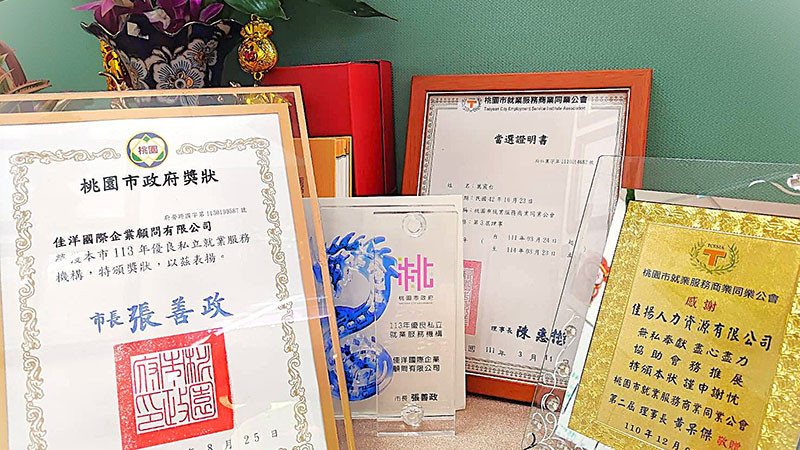 桃園
桃園市政府獎狀
府勞跨國字第1130199587號
佳洋國際企業顧問有限公司
本市113年優良私立就業服務
機構，特頒獎狀，以茲表揚。
市長 張善政
8月25日
桃
桃園市政府
113年優良私立
就業服務機構
佳洋國際企業
顧問有限公司
市長 張善政
桃園市就業服務商業同業公會
Taoyuan City Employment Service Institute Association
當選證明書
民國42年10月23日
桃園市就業服務商業同業公會
111年03月24日起
114年03月23日
理事長 陳惠
111年3月
TCESIA
桃園市就業服務商業同業公會
感謝
佳揚人力資源有限公司
無私奉獻盡心盡力
協助會務推展
特頒本狀謹申謝忱
桃園市就業服務商業同業公會
第二屆理事長 黃杲傑 敬贈
110年12月